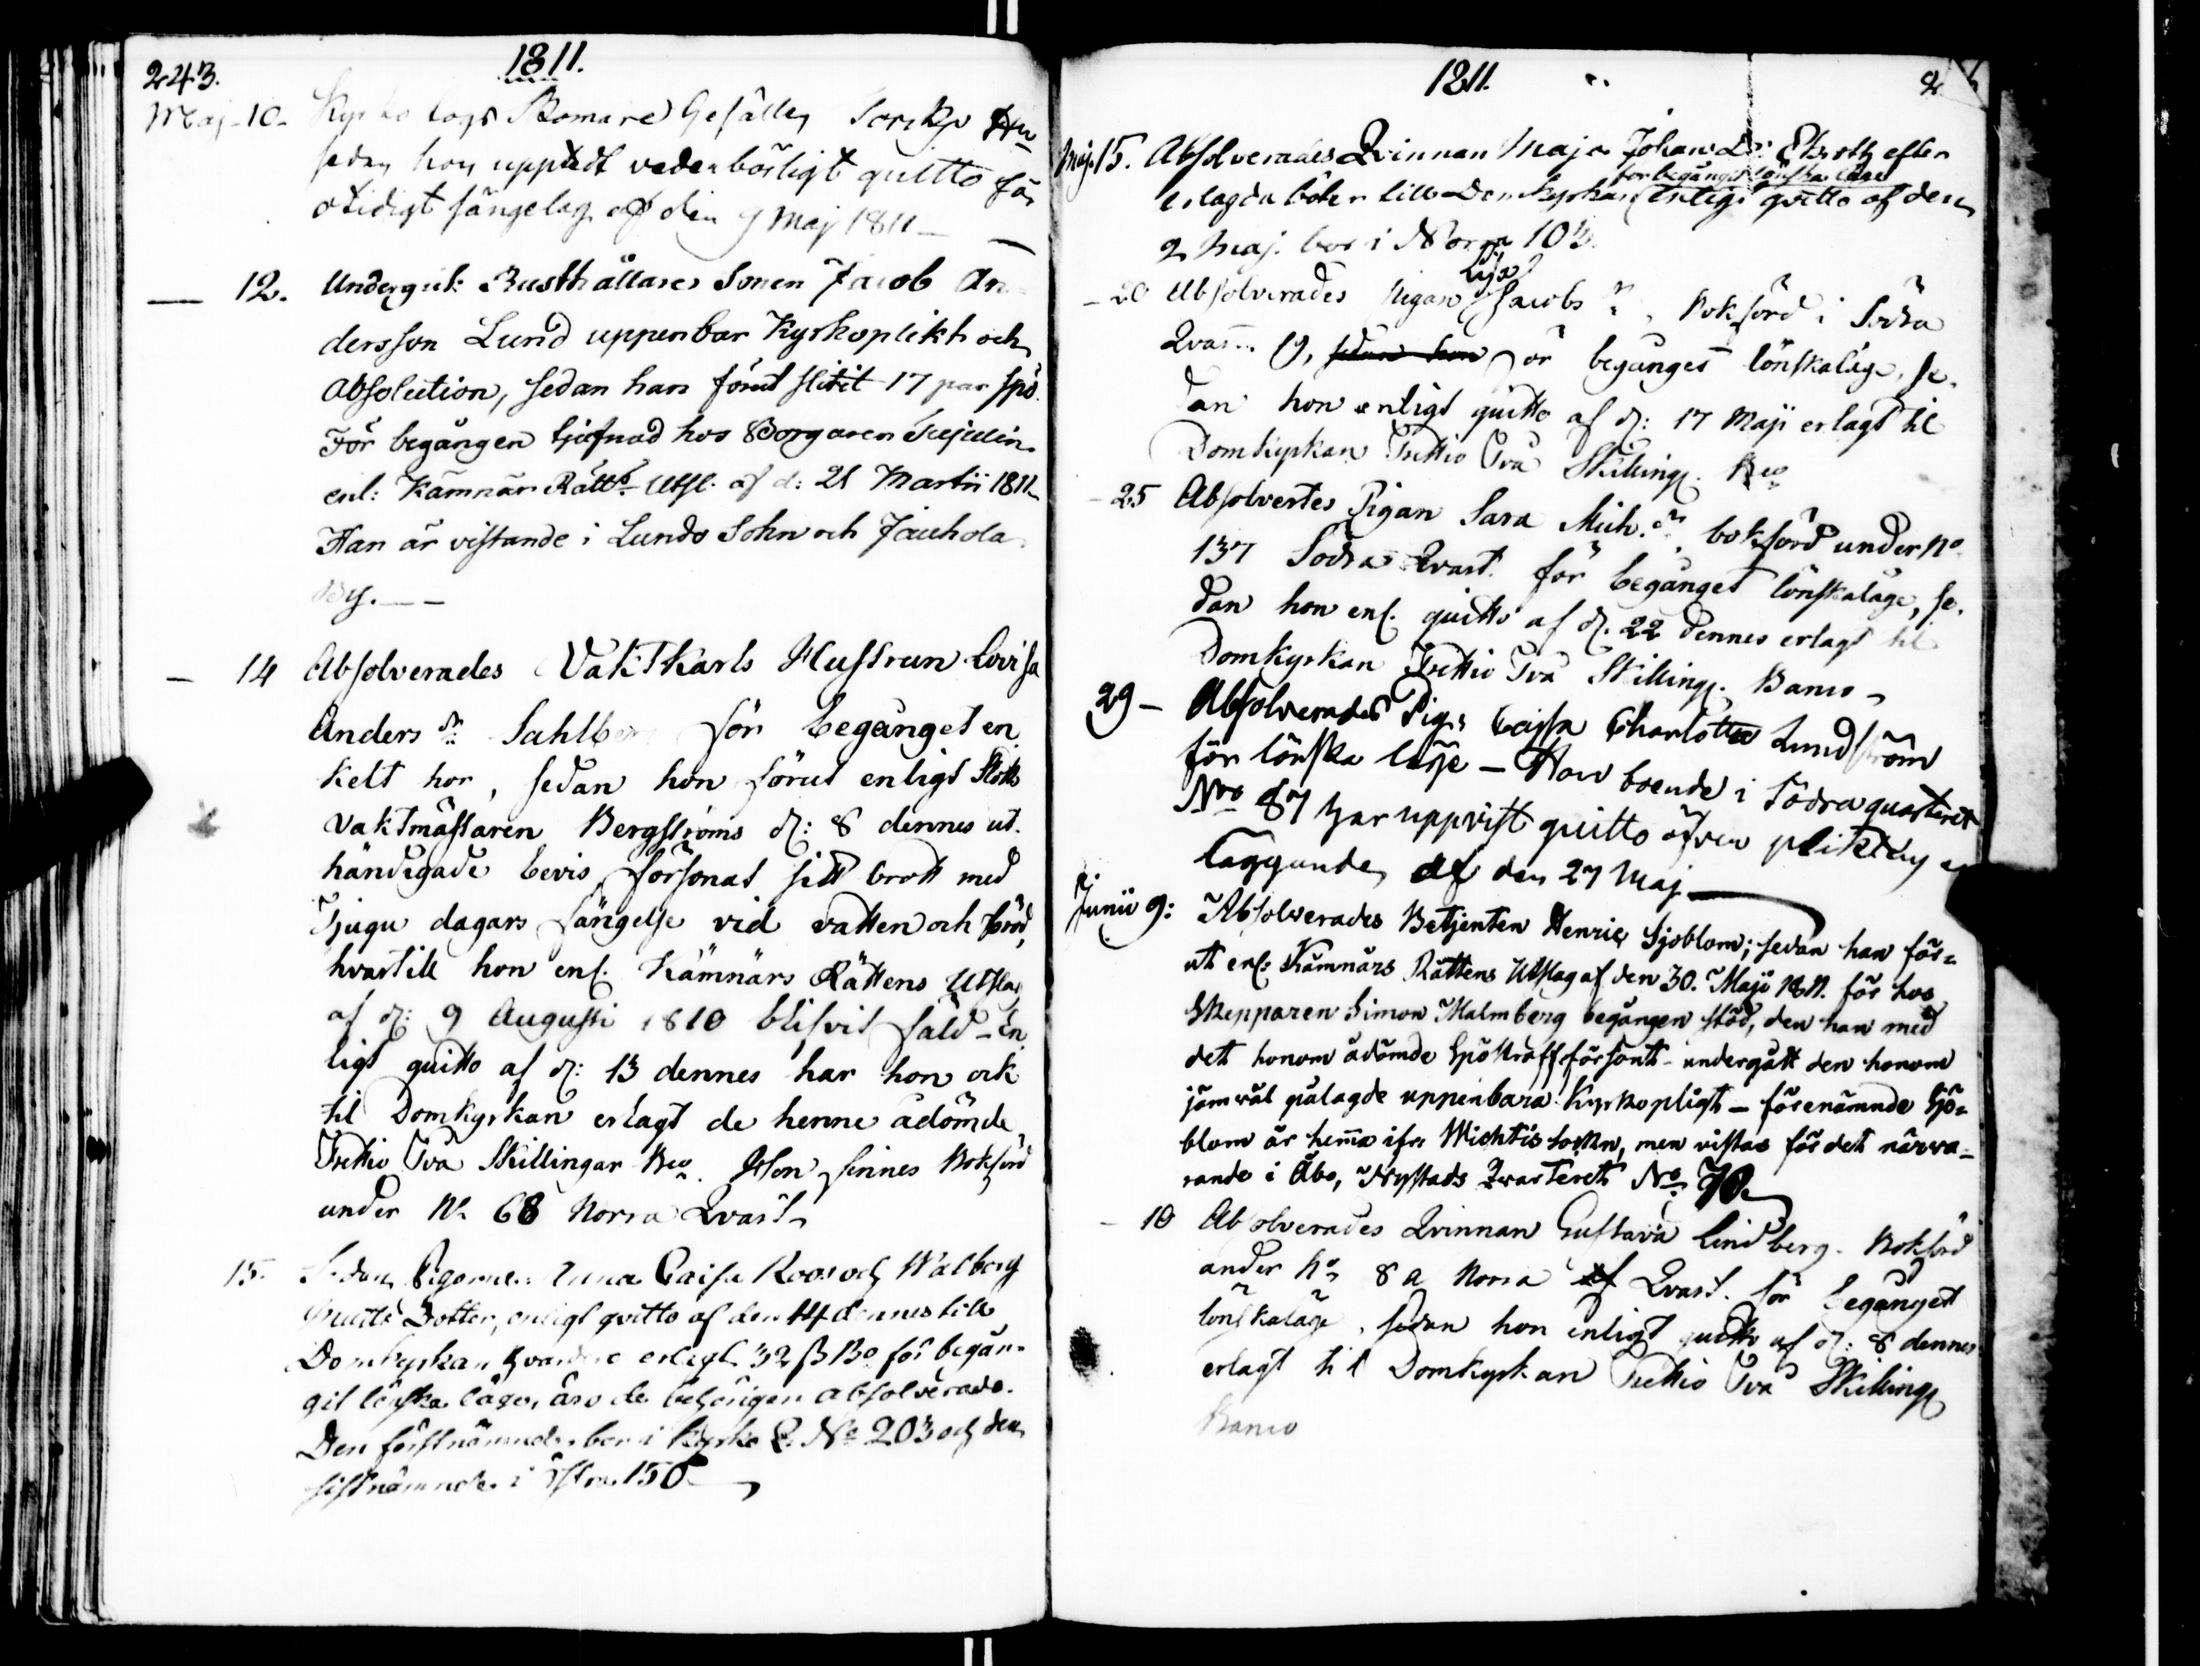 243.
1811.
Maj. 10. Kyrko togs Skomare Gesällen
sedan han upptedt vederbörligt quitto för
otidigt sängelag af den 9 Maj 1811
12. Undergick Rusthållares Sonen Jacob An
dersson Lund uppenbar Kyrkoplikt och
Absolution, sedan han förut slitit 17 par spö
För begången tjufnad hos Borgaren
enl: Kämnärs Rätts Utsl. af d: 21 Martii 1811
Han är vistande i Lundo Sokn och Jauhola
By.
14 Absolverades Vaktkarls Hustrun Lovisa
Anders dr Sahlberg för begånget en
kelt hor, sedan hon förut enligt Slotts
Vaktmästaren Bergströms d: 8 dennes ut-
händigade bevis försonat sitt brott med
Tjugu dagars fängelse vid vatten och bröd,
hvartill hon enl. Kämnärs Rättens Utslag
af d: 9 Augusti 1810 blifvit fäld - En
ligt quitto af d: 13 dennes har hon ock
til Domkyrkan erlagt de henne ådömde
Trettio Två Skillingar Bco. Hon finnes Bokförd
under No 68 Norra Qvart.
15. Sedan Pigorne: Anna Caisa Roos och Walborg
Matts Dotter, enligt qvitto af den 14 dennes till
Domkyrkan hvardera erlagt 32 ß Bo för begån-
git lönska läger, äro de behörigen absolverade.
Den förstnämnde bor i Kyrko Q. No 203 och den
sistnämnde i 150
1811.
Maj. 15. Absolverades Qvinnan Maja Johans Dr Ekroth efter
för begånget lönska läge
erlagda böter till Domkyrkan enligt qvitto af den
2 Maj. bor i Norra 103.
Lisa
20 Absolverades Pigan Jacobs dr, Bokförd i Södra
Qvart. 19, sedan hon för begånget lönskaläge, se-
dan hon enligt quitto af d: 17 Maji erlagt til
Domkyrkan Trettio Två Skilling. Bco
25 Absolvertes Pigan Sara Mich. dr, bokförd under No
137 Södra Qvart. för begånget lönskaläge, se-
dan hon enl. quitto af d. 22 dennes erlagt til
Domkyrkan Trettio Två Skilling. Banco
29 - Absolverades Pigan Cajsa Charlotta Lundström
för lönska läge - Hon boende i Södra quarteret
Nro 87 har uppvist quitto öfver plikten er
läggande af den 27 Maj
Junii 9: Absolverades Betjenten Henric Sjöblom; sedan han för-
ut enl: Kämnärs Rättens Utslag af den 30. Maji 1811. för hos
Skepparen Simon Malmberg begången stöd, den han med
det honom ådömde Spöstraff försont - undergått den honom
jämväl pålagde uppenbara Kyrkopligt - förenämnde Sjö-
blom är hemma ifrån Wichtis Sokn, men vistas för det närva-
rande i Åbo, Nystads Qvarteret No 70.
10 Absolverades Qvinnan Gustava Lindberg. Bokförd
under No 8 a Norra af Qvart. för begånget
lönskaläge, sedan hon enligt quitto af d: 8 dennes
erlagt til Domkyrkan Trettio Två Skilling
Banco